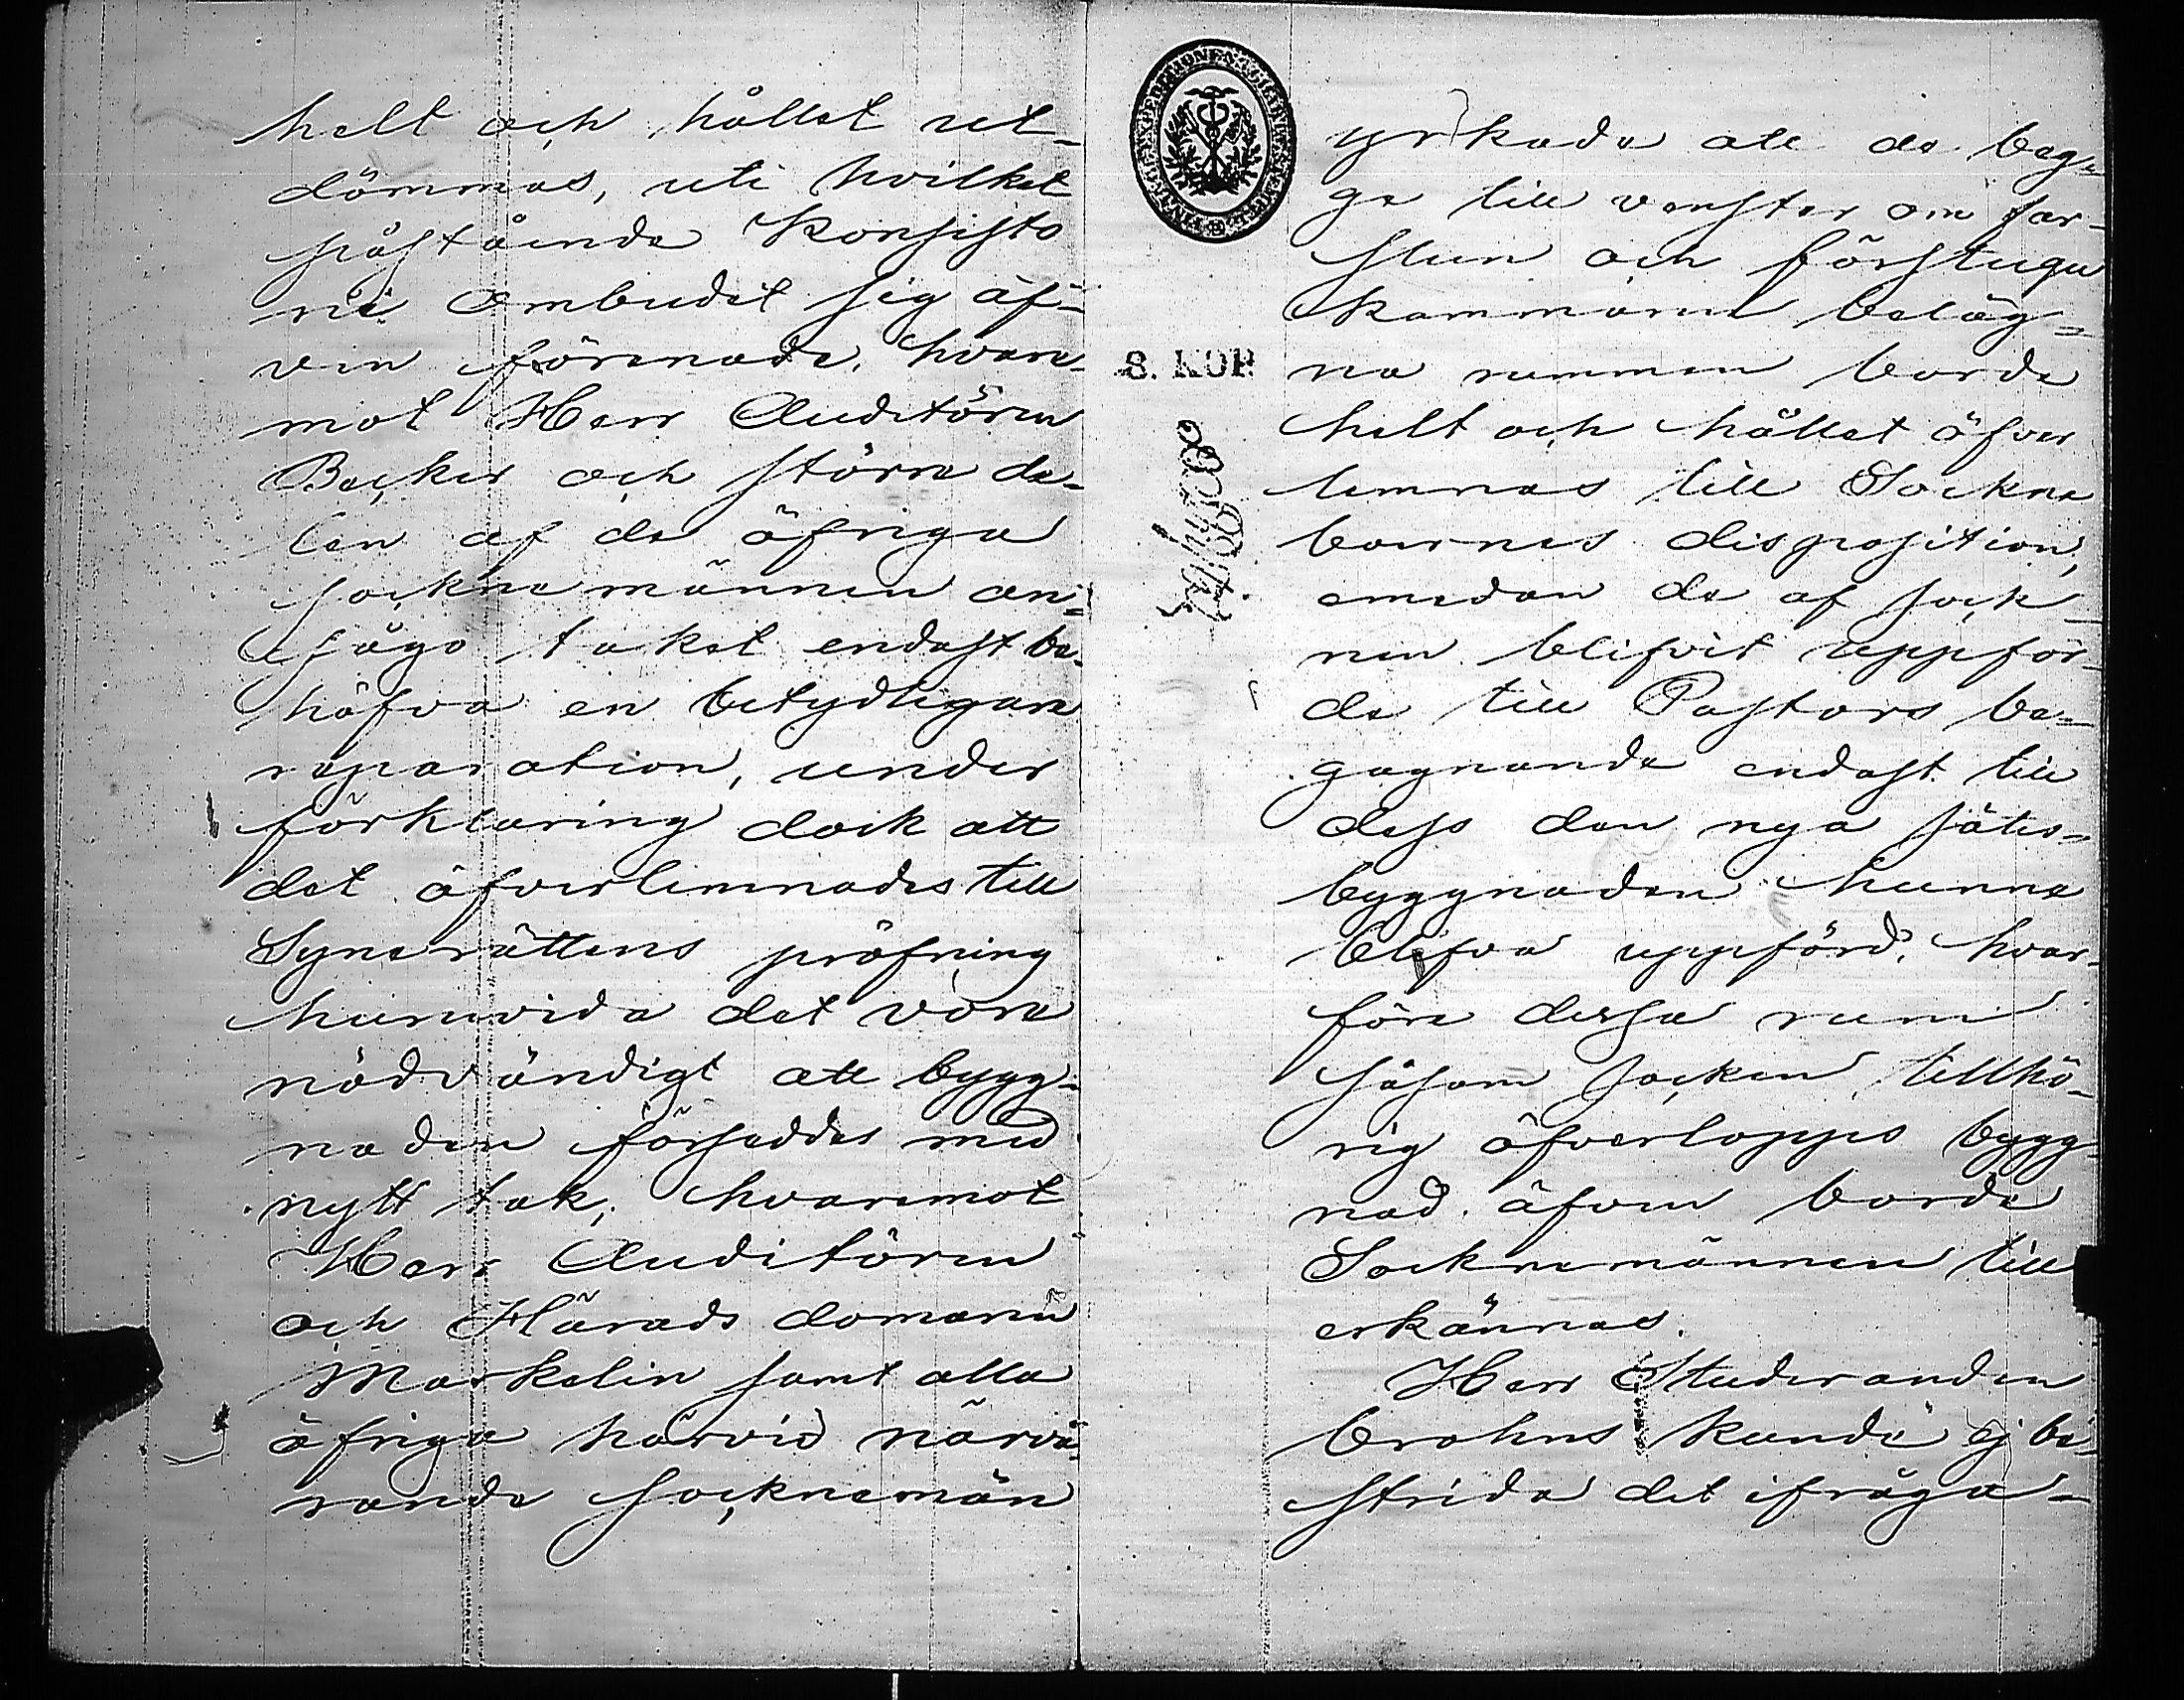 helt och hållet ut-
dömmas, uti hvilket
påstående Konsisto
rii ombudet sig äf-
ven förenade, hvare-
mot Herr Auditören
Becker och större de-
len af de öfriga
sockne männen an-
sågo taket endast be-
höfva en betydligare
reparation, under
förklaring dock att
det öfverlemnades till
Synerättens pröfning
huruvida det vore
nödvändigt att bygg-
naden förseddes med
nytt tak; hvaremot
Herr Auditören
och Härads domaren
Markelin samt alla
öfriga härvid närva-
rande socknemän
8. KOP.
yrkade att de beg-
ge till venster om far-
stun och förstugu
kammaren beläg-
na rummen borde
helt och hållet öfver
lemnas till Sockne
boernes disposition,
emedan de af sock-
nen blifvit uppför-
de till Pastors be-
gagnande endast till
dess den nya sätes-
byggnaden hunne
blifva uppförd; hvar-
före dessa rum
såsom socken tillhö-
rig öfverlopps bygg-
nad äfven borde
Socknemännen till
erkännas.
Herr Studeranden
Crohns kunde ej be-
strida det ifråga-